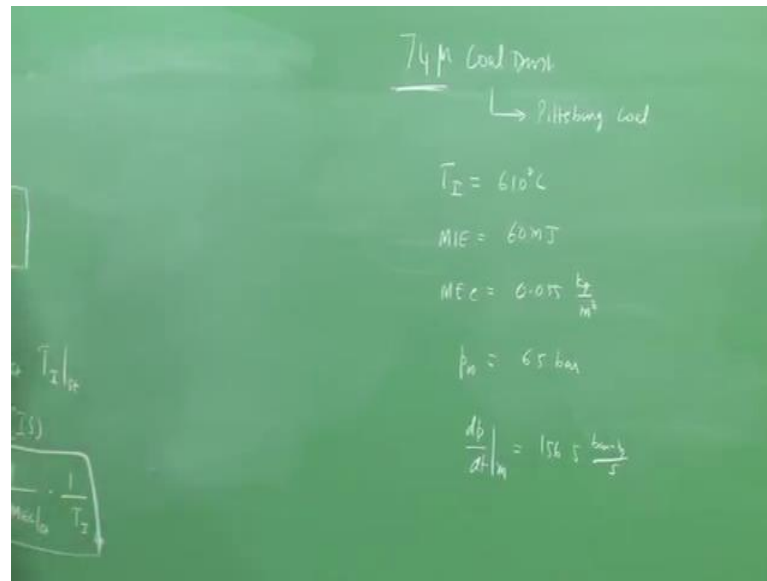 74μ Coal Dust
↳ Pittsburg Coal
T_I = 610°C
MIE = 60 mJ
MEC = 0.055 kg/m³
p_m = 6.5 bar
T_I|st
dp/dt|m = 156.5 /s
IS)
1/T_I